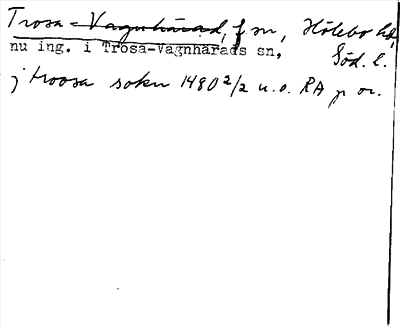 Trosa-Vagnhärad, f sn, Hölebo hd,
nu ing. i Trosa-Vagnhärads sn, Söd. l.
j troosa sokn 1480 2/2 u.o. RA p or.